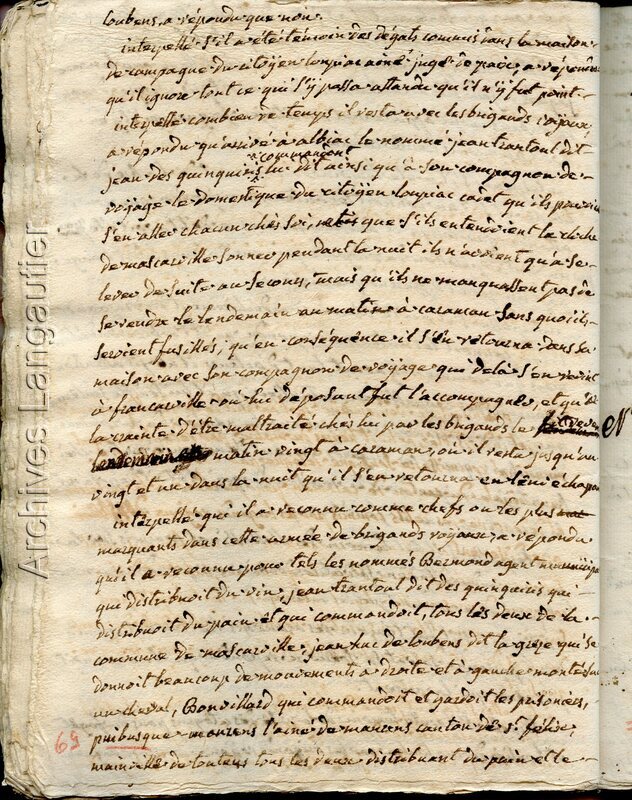 Loubens, a répondu que non.
interpellé s'il a été témoin des dégats commis dans la maison
de campagne du citoyen Loupiac ainé juge de paix, a répondu
qu'il ignore tout ce qui s'y passa attandu qu'il n'y fut point
interpellé combien de temps il resta avec les brigands royaux
a répondu qu'arrivé à albiac le nommé jean trantoul dit
a commandant
jean des quinquiris lui dit ainsi qu'à son compagnon de
voyage le domestique du citoyen Loupiac cadet qu'ils pouvoient
s'en aller chacun chès soi, mais que s'ils entendoient la cloche
de mascarville sonner pendant la nuit ils n'avoient qu'à se
lever de suite au secours, mais qu'ils ne manquassent pas de
se rendre le lendemain au matin à caraman sans quoi ils
seroient fusillés, qu'en conséquence il s'en retourna dans sa
maison avec son compagnon de voyage qui de là s'en revint
à francarville où lui déposant fut l'accompagner, et que
la crainte d'être maltraité chès lui par les brigands le
matin vingt à caraman, où il resta jusqu'au
vingt et un dans la nuit qu'il s'en retourna
interpellé qui il a reconnu comme chefs ou les plus
marquants dans cette armée de brigands royaux, a répondu
qu'il a reconnu pour tels les nommés Bermond agent municipal
qui distribuoit du vin, jean trantoul dit des quinquiris qui
distribuoit du pain et qui commandoit, tous les deux de la
commune de mascarville, jean huc de loubens dit la grese qui se
donnoit beaucoup de mouvements à droite et à gauche monté sur
un cheval, Bonvillard qui commandoit et gardoit les prisoniers,
puibusque maurens l'ainé de maurens canton de st félix,
mainville de toutens tous les deux distribuant du pain et le
69
Archives Langautier